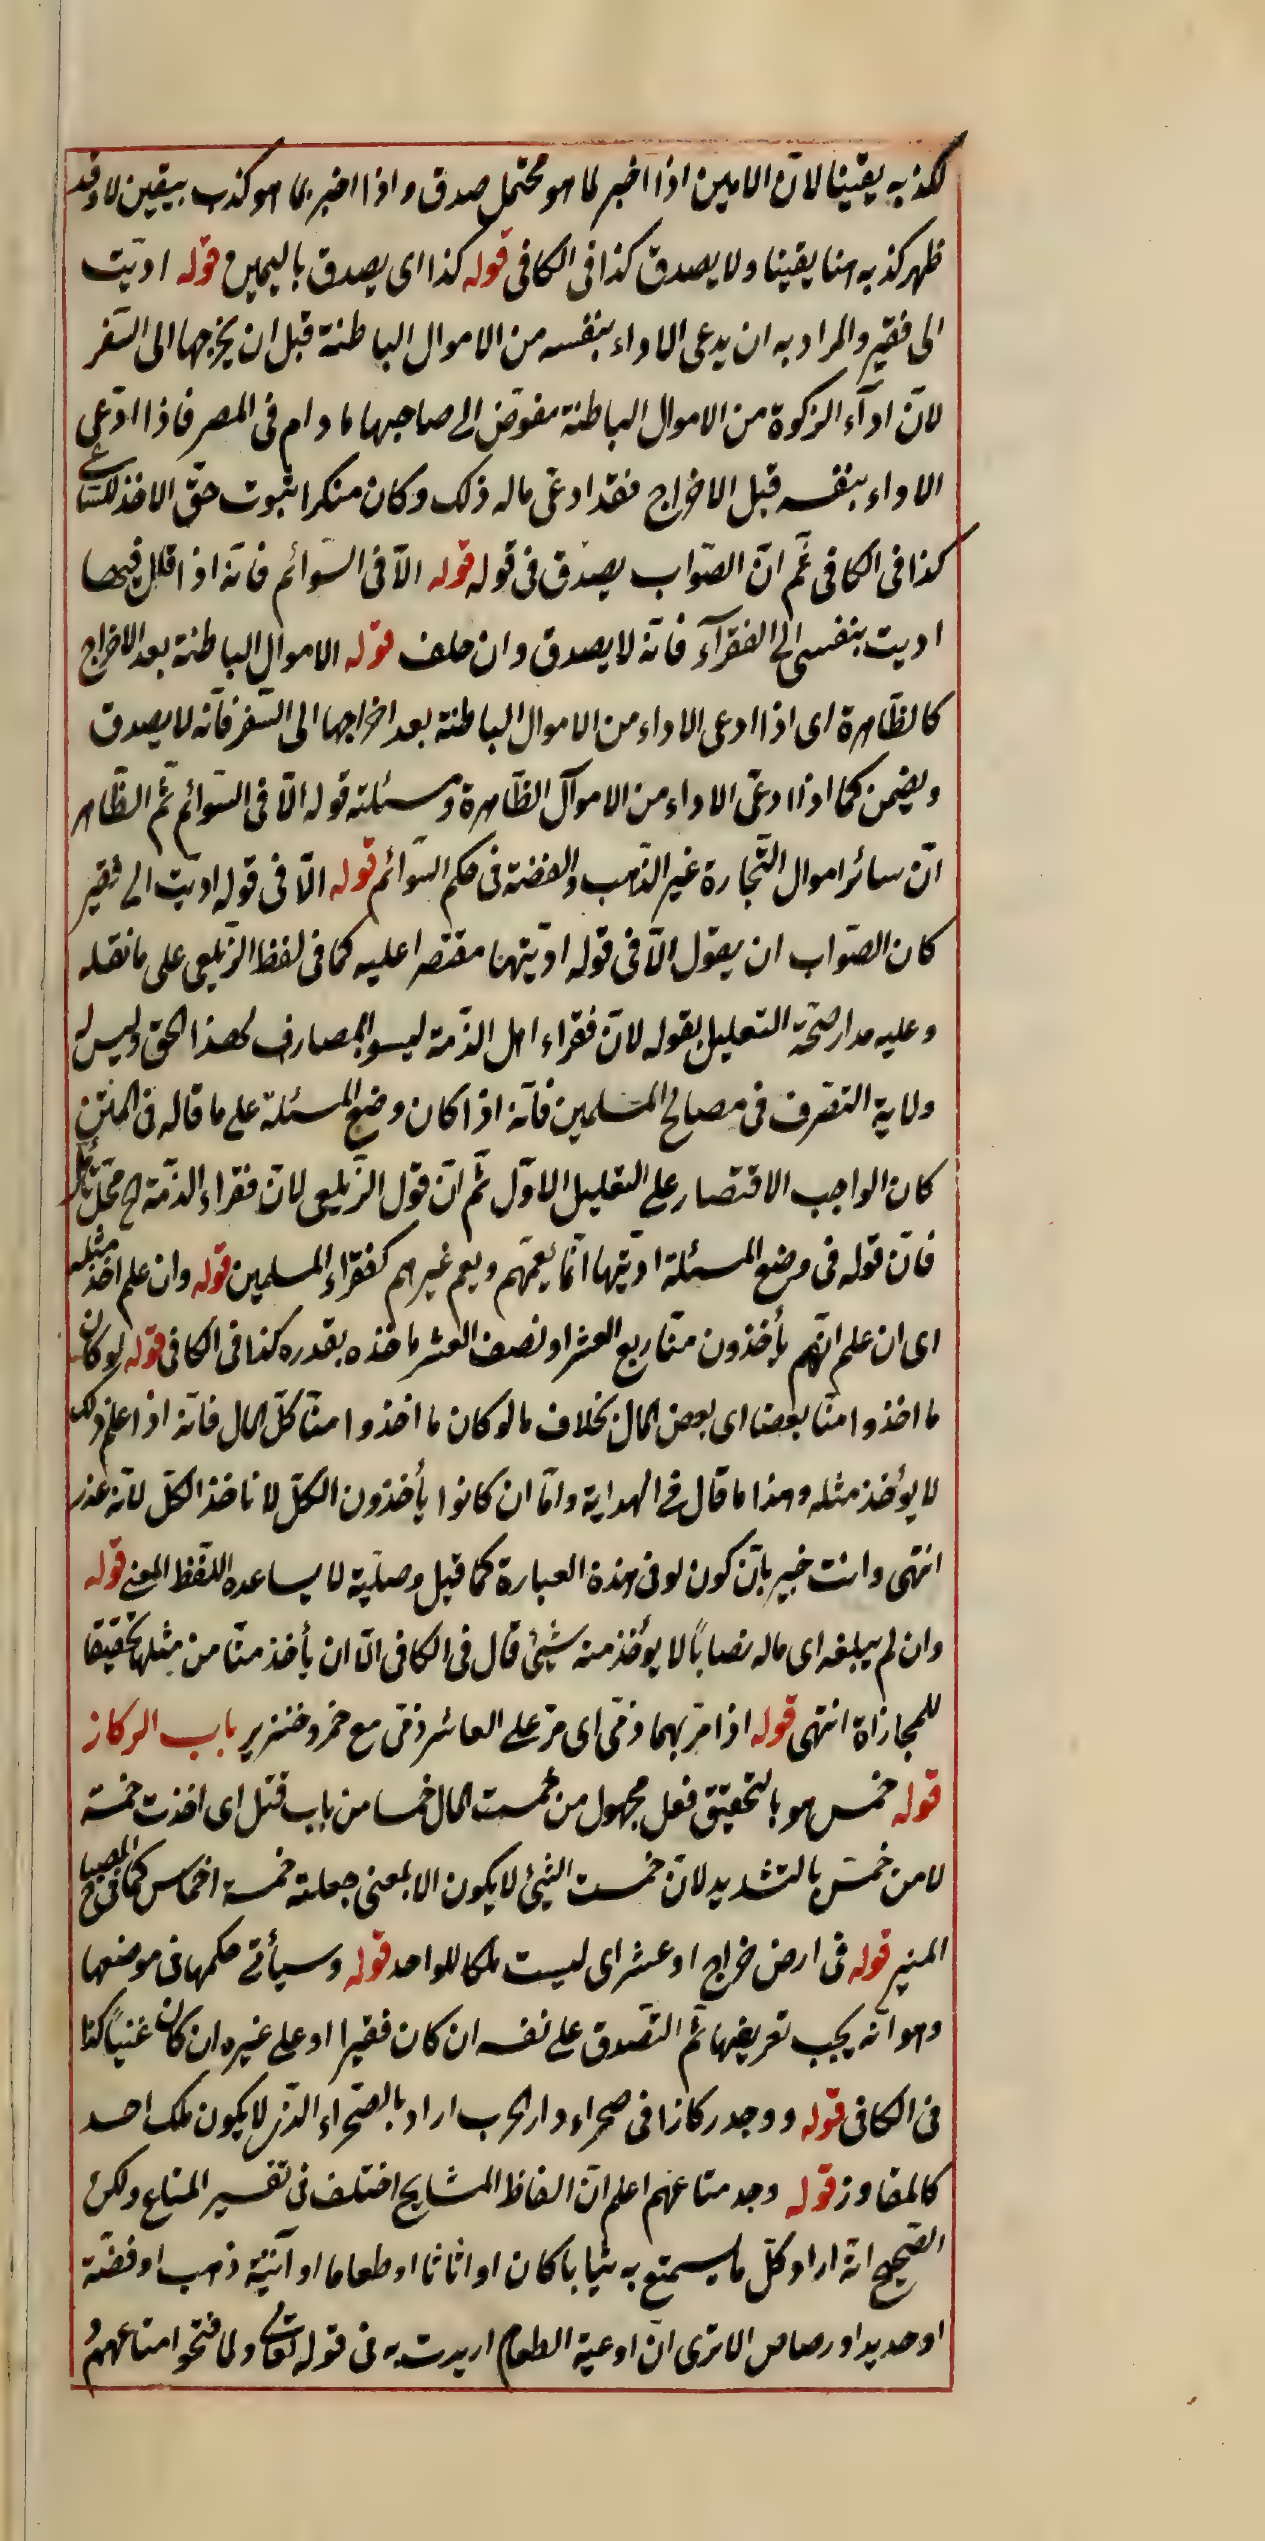 لكذبه يقينا لانّ الامين اذا اخبر لما هو محتمل صدق واذا اخبر بما هو كذب بيقين لا وقد
ظهر كذبه هنا يقينا ولا يصدق كذا فى الكافى قوله كذا اى يصدق باليمين قوله ادّيت
الى فقير والمراد به ان يدعى الاداء بنفسه من الاموال الباطنة قبل ان يخرجها الى السّفر
لانّ ادآء الزكوة من الاموال الباطنة مفوّض الى صاحبها ما دام فى المصر فاذا ادّعى
الاداء بنفسه قبل الاخراج فقد ادعى ماله ذلك وكان منكرا ثبوت حقّ الاخذ للسّاعى
كذا فى الكافى ثمّ انّ الصّواب يصدّق فى قوله قوله الّا فى السّوائم فانّه اذا قال فيها
اديت بنفسى الى الفقرآء فانّه لا يصدق وان حلف قوله الاموال الباطنة بعد الاخراج
كالظّاهرة اى اذا ادعى الاداء من الاموال الباطنة بعد اخراجها الى السّفر فانّه لا يصدق
ويضمن كما اذا ادعّى الاداء من الاموآل الظّاهرة ومسئلته قوله الّا فى السّوائم ثمّ الظّاهر
انّ سائر اموال التّجارة غير الذّهب والفضة فى حكم السّوائم قوله الّا فى قوله ادّيت الى فقير
كان الصّواب ان يقول الّا فى قوله ادّيتهنا مقتصرا عليه كما فى لفظ الزّيلعى على ما نقله
وعليه مدار صحّة التعليل بقوله لانّ فقراء اهل الذّمة ليسوا بمصارف لهذا الحق وليس له
ولاية التصّرف فى مصالح المسلمين فانّه اذا كان وضع المسئلة على ما قاله فى المتن
كان الواجب الاقتصار على التعليل الاوّل ثمّ انّ قول الزّيلعى لانّ فقراء الذّمّة الخ محّل تأمّل
فانّ قوله فى موضع المسئلة ادّيتها انّما يعمّهم ويعم غيرهم كفقراء المسلمين قوله وان علم اخذ مثله
اى ان علم انّهم يأخذون منّا ربع العشر او نصف العشر ماخذه بقدره كذا فى الكافى قوله لو كان
ما اخذوا منّا بعضا اى بعض المال بخلاف ما لو كان ما اخذوا منّا كلّ المال فانّه اذا علم ذلك
لا يؤخذ مثله وهذا ما قال فى الهداية وامّا ان كانوا يأخذون الكلّ لا ناخذ الكلّ لانّه غدر
انتهى وانت خبير بانّ كون لو فى هذه العبارة كما قيل وصليّة لا يساعده اللّفظ والمعنى قوله
وان لم يبلغه اى ماله نصاباً لا يؤخذ منه شيئ قال فى الكافى الّا ان يأخذ منّا من مثلها تحقيقا
للمجازاة انتهى قوله اذا مرّ بهما ذمّى اى مرّ على العاشر ذمّى مع خمر وخنزير باب الركاز
قوله خمس هو بالتخفيف فعل مجهول من خمست المال خمسا من باب قتل اى اخذت خمسه
لا من خمّس بالتشديد لانّ خمست الشيئ لا يكون الا بمعنى جعلته خمسة اخماس كما فى المصباح
المنير قوله فى ارض خراج او عشر اى ليست ملكا للواحد قوله وسيأتى حكمها فى موضعها
وهو انّه يجب تعريفها ثمّ التصّدق على نفسه ان كان فقيرا او على غيره ان كان غنيّاً كذا
فى الكافى قوله ووجد ركازا فى صحراء دار الحرب اراد بالصّحراء الذى لا يكون ملك احد
كالمفاوز قوله وجد متاعهم اعلم انّ الفاظ المشايخ اختلف فى تفسير المتاع ولكن
الصّحيح انّه اراد كلّ ما يستمتع به ثيابا كان او اثاثا او طعاما او آنية ذهب او فضّة
او حديد او رصاص الا ترى انّ اوعية الطعام اريدت به فى قوله تعالى ولما فتحوا متاعهم و